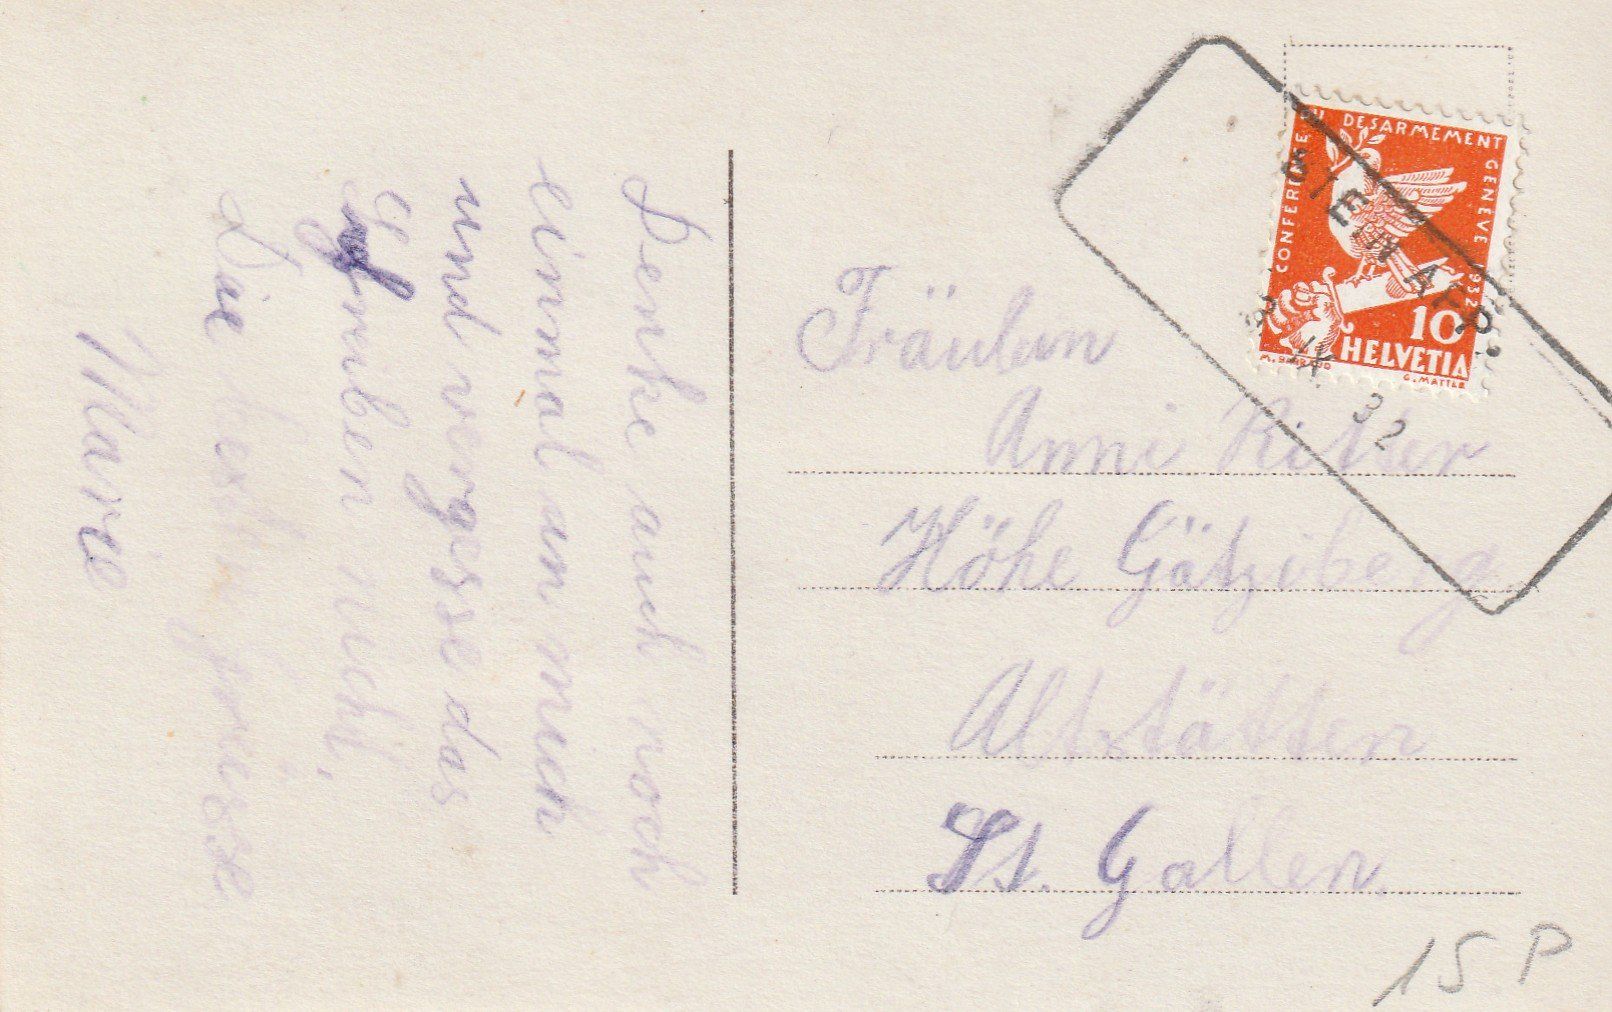 Denke auch noch
einmal an mich
und vergesse das
Schreiben nicht.
Die besten Grüsse
Marie
Fräulein
Anni Ritter
Höhe Götziberg
Altstätten
St. Gallen
CONFERENCE DU DESARMEMENT GENEVE 1932
10
HELVETIA
G. MATTER
IX. 32
15 P